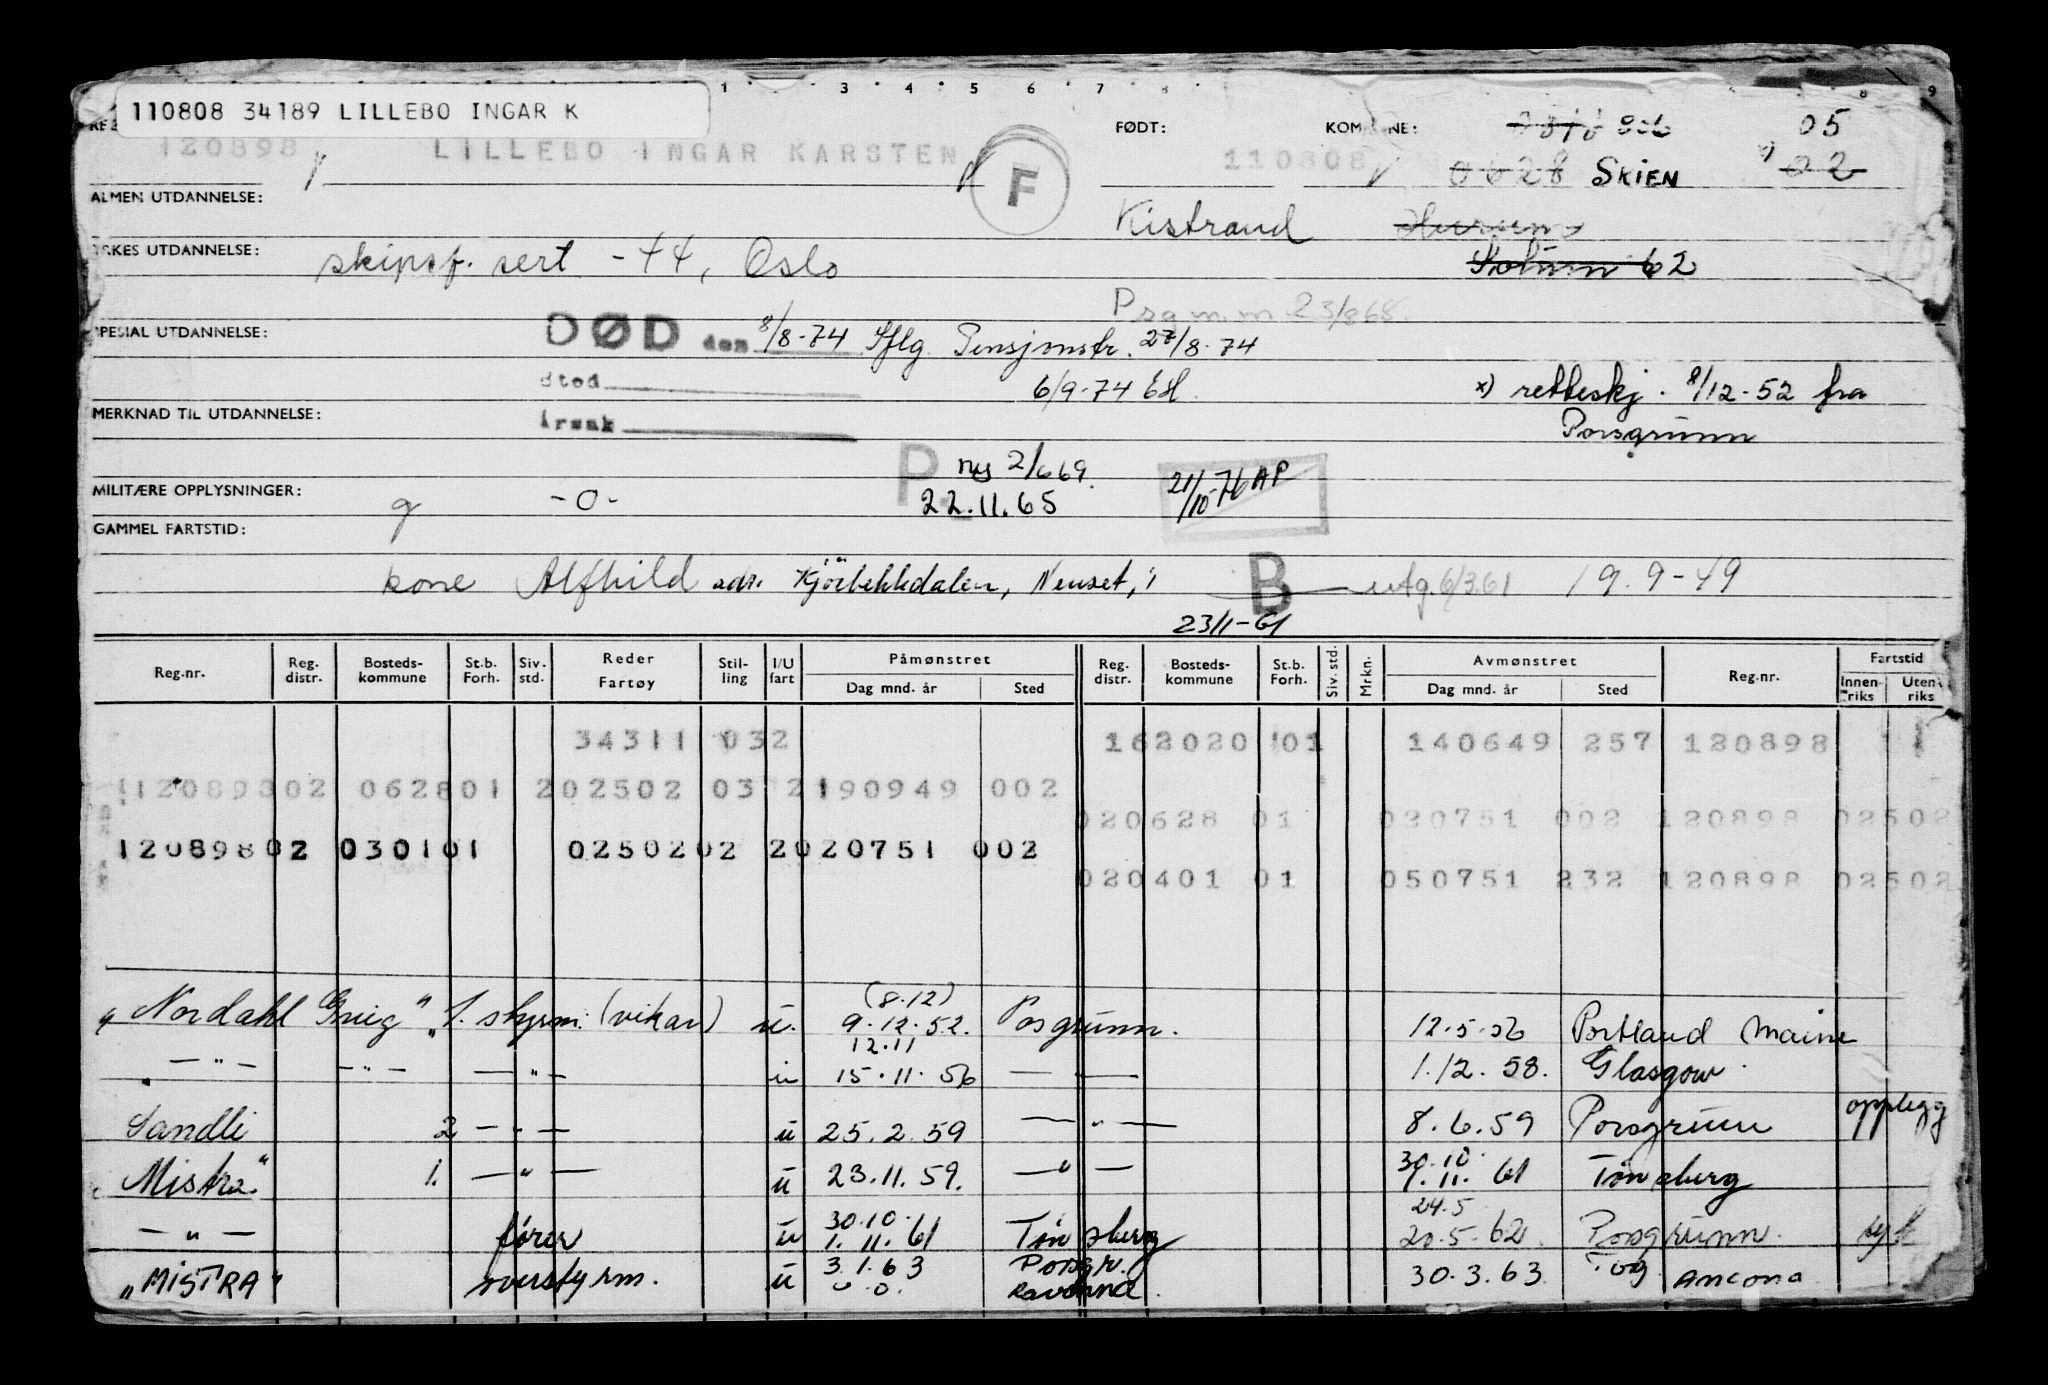 1 3 4 5 6 7 8 9
110808 34189 LILLEBO INGAR K
FØDT: KOMMUNE: 806 05
120898 LILLEBO INGAR KARSTEN F 110808 0628 SKIEN x) 02
ALMEN UTDANNELSE:
Kistrand Hurum
UTDANNELSE: skipsf. sert -44, Oslo Solum 62
Psgr. m.m 23/868.
SPESIAL UTDANNELSE: DØD den 8/8-74 Iflg. Pensjonstr. 27/8-74
Sted 6/9-74 EH. x) retteskj. 8/12-52 fra
MERKNAD TIL UTDANNELSE: Årsak Porsgrunn
P. ny 2/669. 21/10-76 AP
MILITÆRE OPPLYSNINGER: g -0- 22.11.65
GAMMEL FARTSTID:
kone Alfhild adr. Kjörbekkdalen, Nenset, B utg. 6/3.61 19.9-49
23/1-61
Reg.nr. Reg. distr. Bosteds-kommune St.b. Forh. Siv. std. Reder Fartøy Stil-ling I/U fart Påmønstret Dag mnd. år Sted Reg. distr. Bosteds-kommune St.b. Forh. Siv. std. Mrkn. Avmønstret Dag mnd. år Sted Reg.nr. Fartstid Innen-riks Uten-riks
34311 032 162020 101 140649 257 120898
12089802 062801 202502 03 2190949 002
020628 01 020751 002 120898 02502
12089802 030101 02502 02 2020751 002
020401 01 050751 232 120898 02502
(8.12)
"Nordahl Grieg" 1. styrm. (vikar) u. 9.12.52. Porsgrunn. 12.5.56 Portland Maine
12.11
— " — — " — — " — u 15.11.56 — " — 1.12.58. Glasgow.
Sandli 2 — " — u 25.2.59 — " — 8.6.59 Porsgrunn opplegg
30.10
"Mistra" 1. — " — u 23.11.59. — " — 1.11.61 Tönsberg
30.10 24.5
— " — fører u 1.11.61 Tönsberg 20.5.62 Porsgrunn. syk
"MISTRA" overstyrm. u 3.1.63 Porsgr. 30.3.63 Ancona
Ravenna